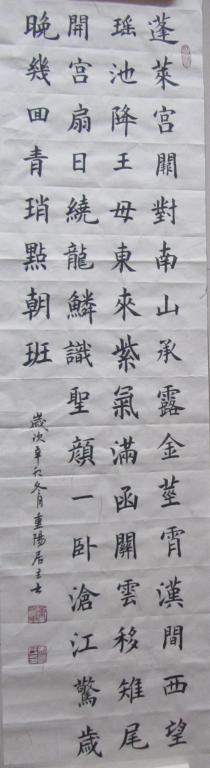 蓬萊宮闕對南山承露金莖霄漢間西望
瑤池降王母東來紫氣滿函關雲移雉尾
開宮扇日繞龍鱗識聖顏一臥滄江驚歲
晚幾回青瑣點朝班
歲次辛卯冬月重陽居主士